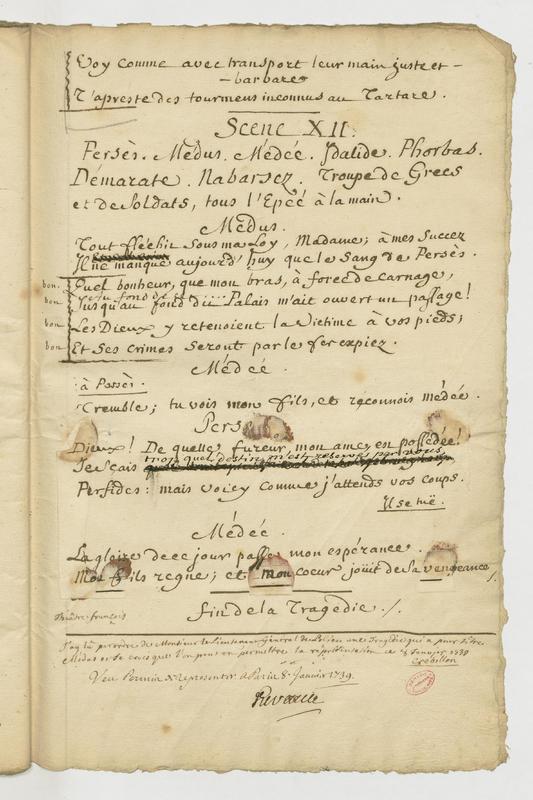 Voy comme avec transport leur main juste et -
- barbare
T'apreste des tourmens inconnus au Tartare.
Scene XII.
Persès. Médus. Médée. Idalide. Phorbas.
Démarate. Nabarsez. Troupe de Grecs
et de Soldats, tous l'Epée à la main.
Médus.
Tout fléchit sous ma Loy, Madame; à mes succez
Il ne manque aujourd'huy que le sang de Persès.
bon. Quel bonheur, que mon bras, à force de carnage,
au fond de
bon Jusqu'au fond du Palais m'ait ouvert un passage!
bon Les Dieux y retenoient la Victime à vos pieds;
bon Et ses crimes seront par le fer expiez.
Médée.
à Persès.
Tremble; tu vois mon fils, et reconnois médée.
Persès
Dieux! De quelle fureur mon ame, en possedée!
quel destin m'est reservé par vous
Je sçais
Perfides: mais voicy comme j'attends vos coups.
Il se tüe.
Médée.
La gloire de ce jour passe mon espérance.
Mon fils regne; et mon coeur joüit de sa vengeance
fin de la Tragedie./.
Théâtre françois
J'ay lû par ordre de Monsieur le Lieutenant Général de Police une Tragédie qui a pour titre
Médus et je crois que l'on peut en permettre la représentation ce Janvier 1739
Crébillon
Veu Permis de representer à Paris 8e Janvier 1739.